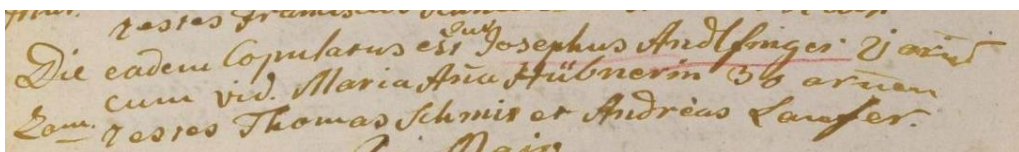 testes Franciscus
Die eadem Copulatus est Juv Josephus Andlfinger 21 añud
cum vid. Maria Aña Hübnerin 30 aruen
Zam. Testes Thomas Schmit et Andreas Laufer.